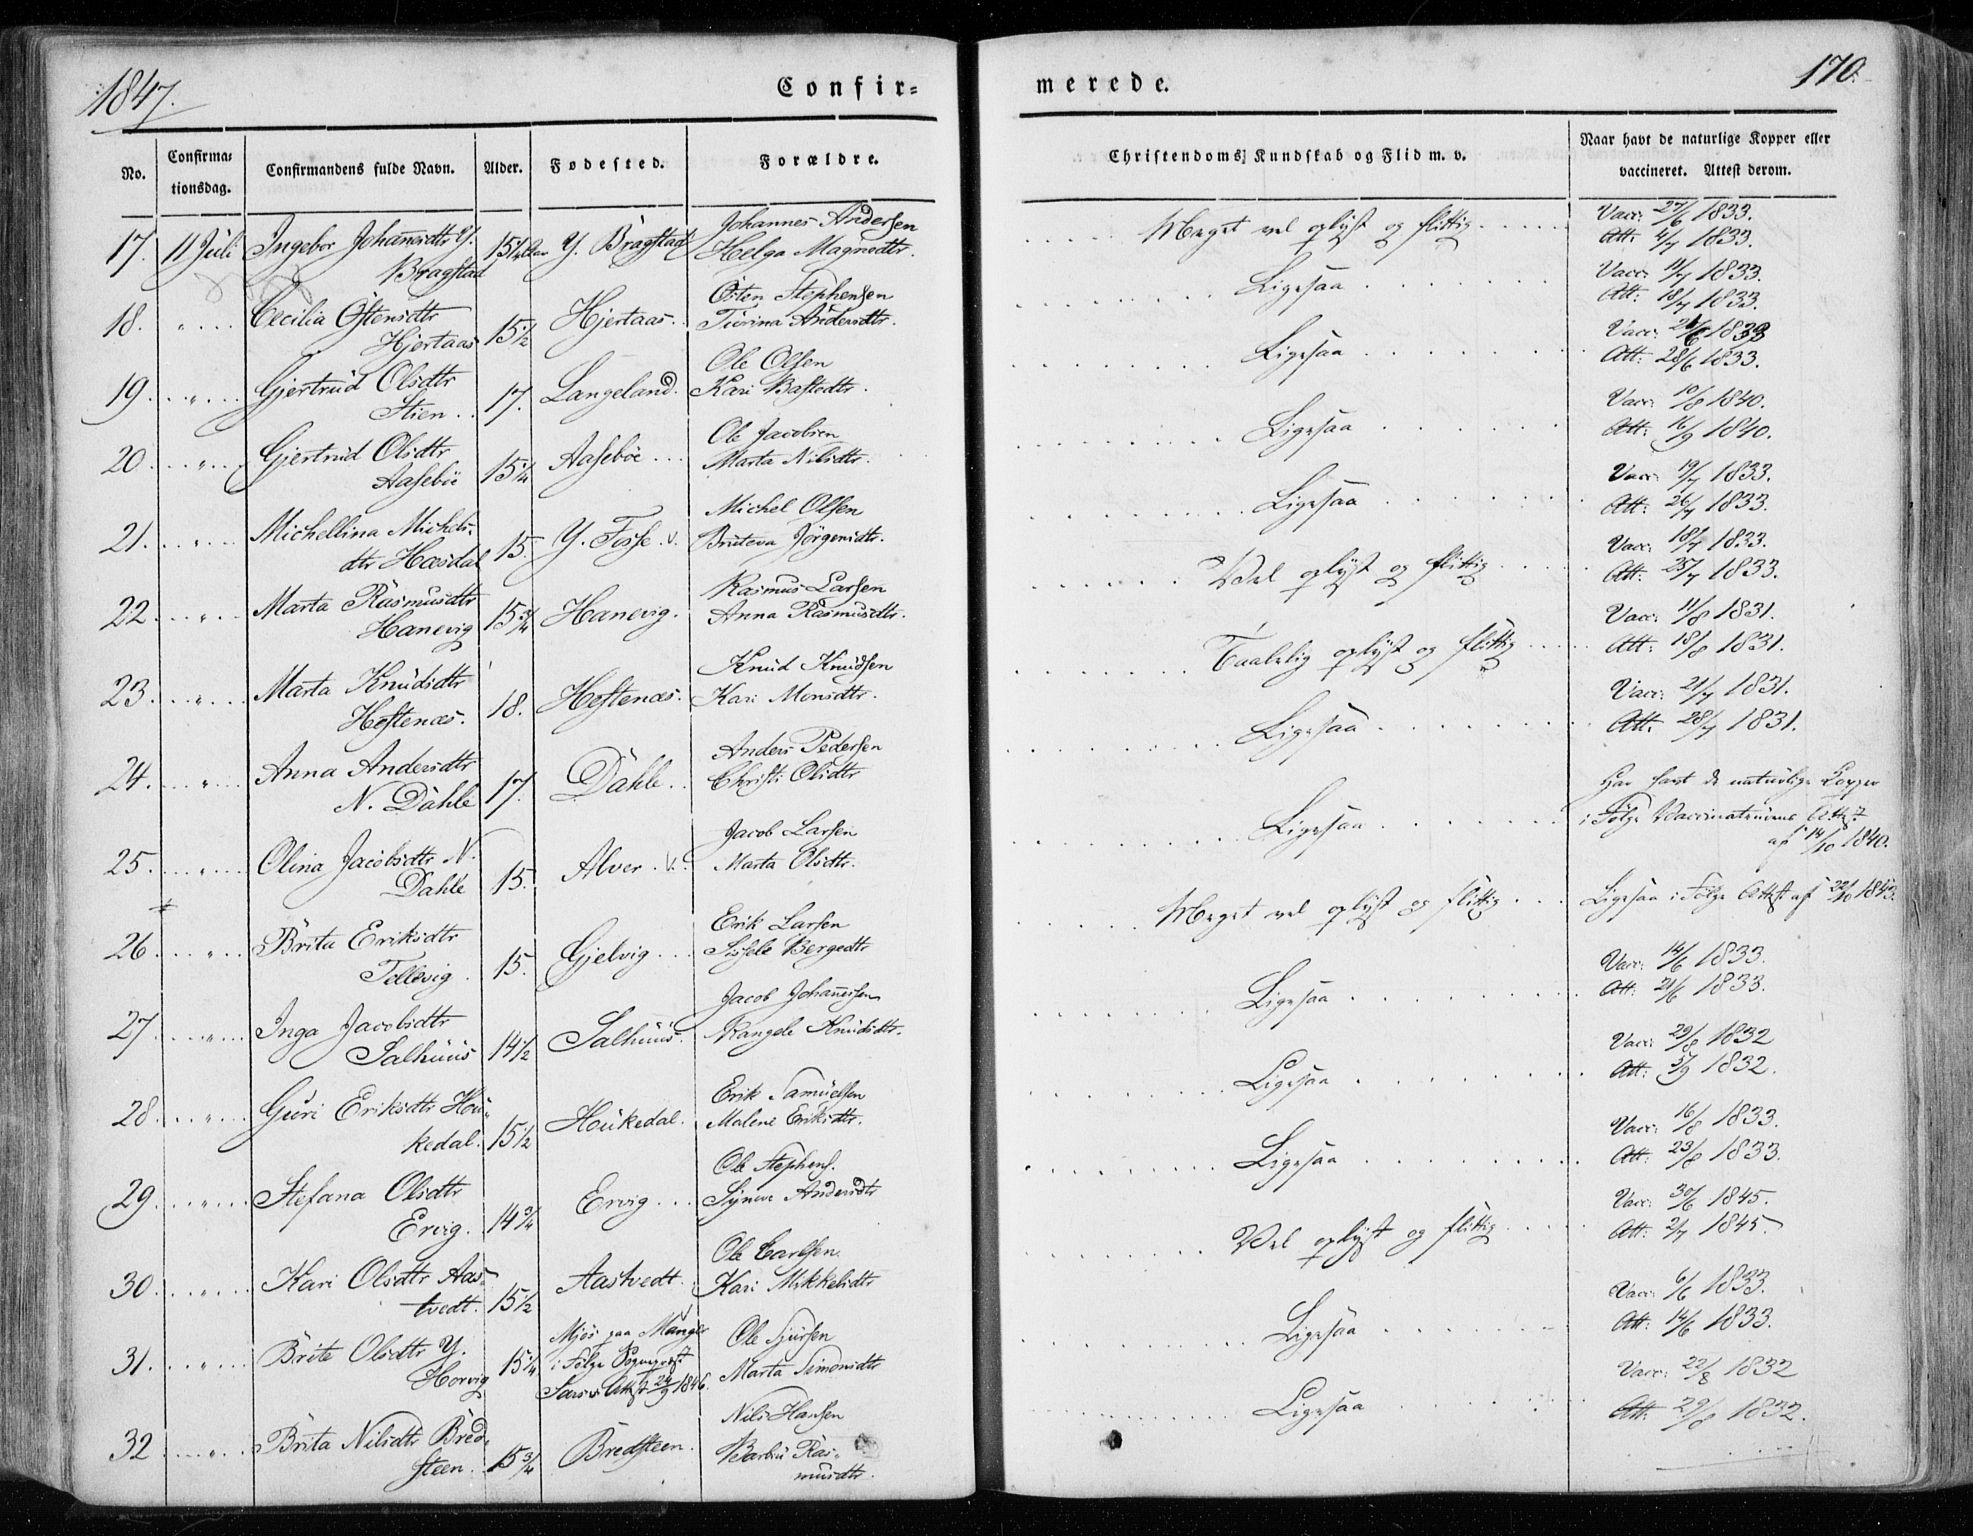 1847.
Confir=
merede.
170.
No.
Confirma=
tionsdag.
Confirmandens fulde Navn.
Alder.
Fødested.
Forældre.
Christendoms Kundskab og Flid m. v.
Naar havt de naturlige Kopper eller
vaccineret. Attest derom.
17. 11 Juli Ingebor Johannsdtr Y. Bragstad 15 1/4 Aar Y. Bragstad Johannes Andersen Helga Magnedtr. Meget vel oplyst og flittig Vacc: 27/6 1833. Att: 4/7 1833.
18. " Cecilia Østensdtr Hjertaas 15 1/2 Hjertaas. Østen Stephensen Turina Andersdtr. Ligesaa Vacc: 11/7 1833. Att: 18/7 1833.
19. " Gjertrud Olsdtr Stien 17. Langeland. Ole Olsen Kari Bastedtr. Ligesaa Vacc: 1833 Att: 28/6 1833.
20. " Gjertrud Olsdtr Aasebøe 15 1/4 Aasebøe Ole Jacobsen Marta Nilsdtr. Ligesaa Vacc: 10/8 1840. Att: 16/9 1840.
21. " Michellina Michels-dtr Hæsdal 15. Y. Fosse v. Michel Olsen Briteva Jørgensdtr. Ligesaa Vacc: 19/7 1833. Att: 26/7 1833.
22. " Marta Rasmusdtr Hanevig 15 3/4 Hanevig. Rasmus Larsen Anna Rasmusdtr. Vel oplyst og flittig Vacc: 18/7 1833. Att: 25/7 1833.
23. " Marta Knudsdtr Hestenæs. 18. Hestenæs. Knud Knudsen Kari Monsdtr. Taalelig oplyst og flittig Vacc: 11/8 1831. Att: 18/8 1831.
24. " Anna Andersdtr N. Dahle 17. Dahle Anders Pedersen Christi Olsdtr Ligesaa Vacc: 21/7 1831. Att. 28/7 1831.
25. " Olina Jacobsdtr N. Dahle 15. Alver v. Jacob Larsen Marta Olsdtr. Ligesaa Har havt de naturlige Kopper i Følge Vaccinateurens Attest af 14/10 1840.
26. " Brita Eriksdtr Tellevig. 15. Gjelvig Erik Larsen Sissele Bergedtr Meget vel oplyst og flittig Ligesaa i Følge Attest af 22/10 1843.
27. " Inga Jacobsdtr Salhuus 14 1/2 Salhuus. Jacob Johannesen Rangele Knudsdtr. Ligesaa Vacc: 14/6 1833. Att: 21/6 1833.
28. " Guri Eriksdtr Hou-kedal. 15 1/2 Houkedal. Erik Samuelsen Malene Eriksdtr. Ligesaa Vacc: 29/8 1832 Att: 5/9 1832.
29. " Stefana Olsdtr Ervig. 14 3/4 Ervig Ole Stephens. Syneve Andersdtr Ligesaa Vacc: 16/8 1833. Att: 23/8 1833.
30. " Kari Olsdtr Aas-tvedt. 15 1/2 Aastvedt. Ole Carlsen. Kari Mikkelsdtr Vel oplyst og flittig Vacc: 30/6 1845. Att: 2/7 1845
31. " Brite Olsdtr Y. Horvig 15 1/4 Mjøs paa Manger i Følge Sogneprest Sars's Attest 24/9 1846. Ole Sjursen Marta Simonsdtr Ligesaa Vacc: 6/6 1833. Att: 14/6 1833.
32 " Brita Nilsdtr Bred-steen. 15 3/4 Bredsteen. Nils Hansen Barbru Ras-musdtr. Ligesaa Vacc: 22/8 1832 Att: 29/8 1832.